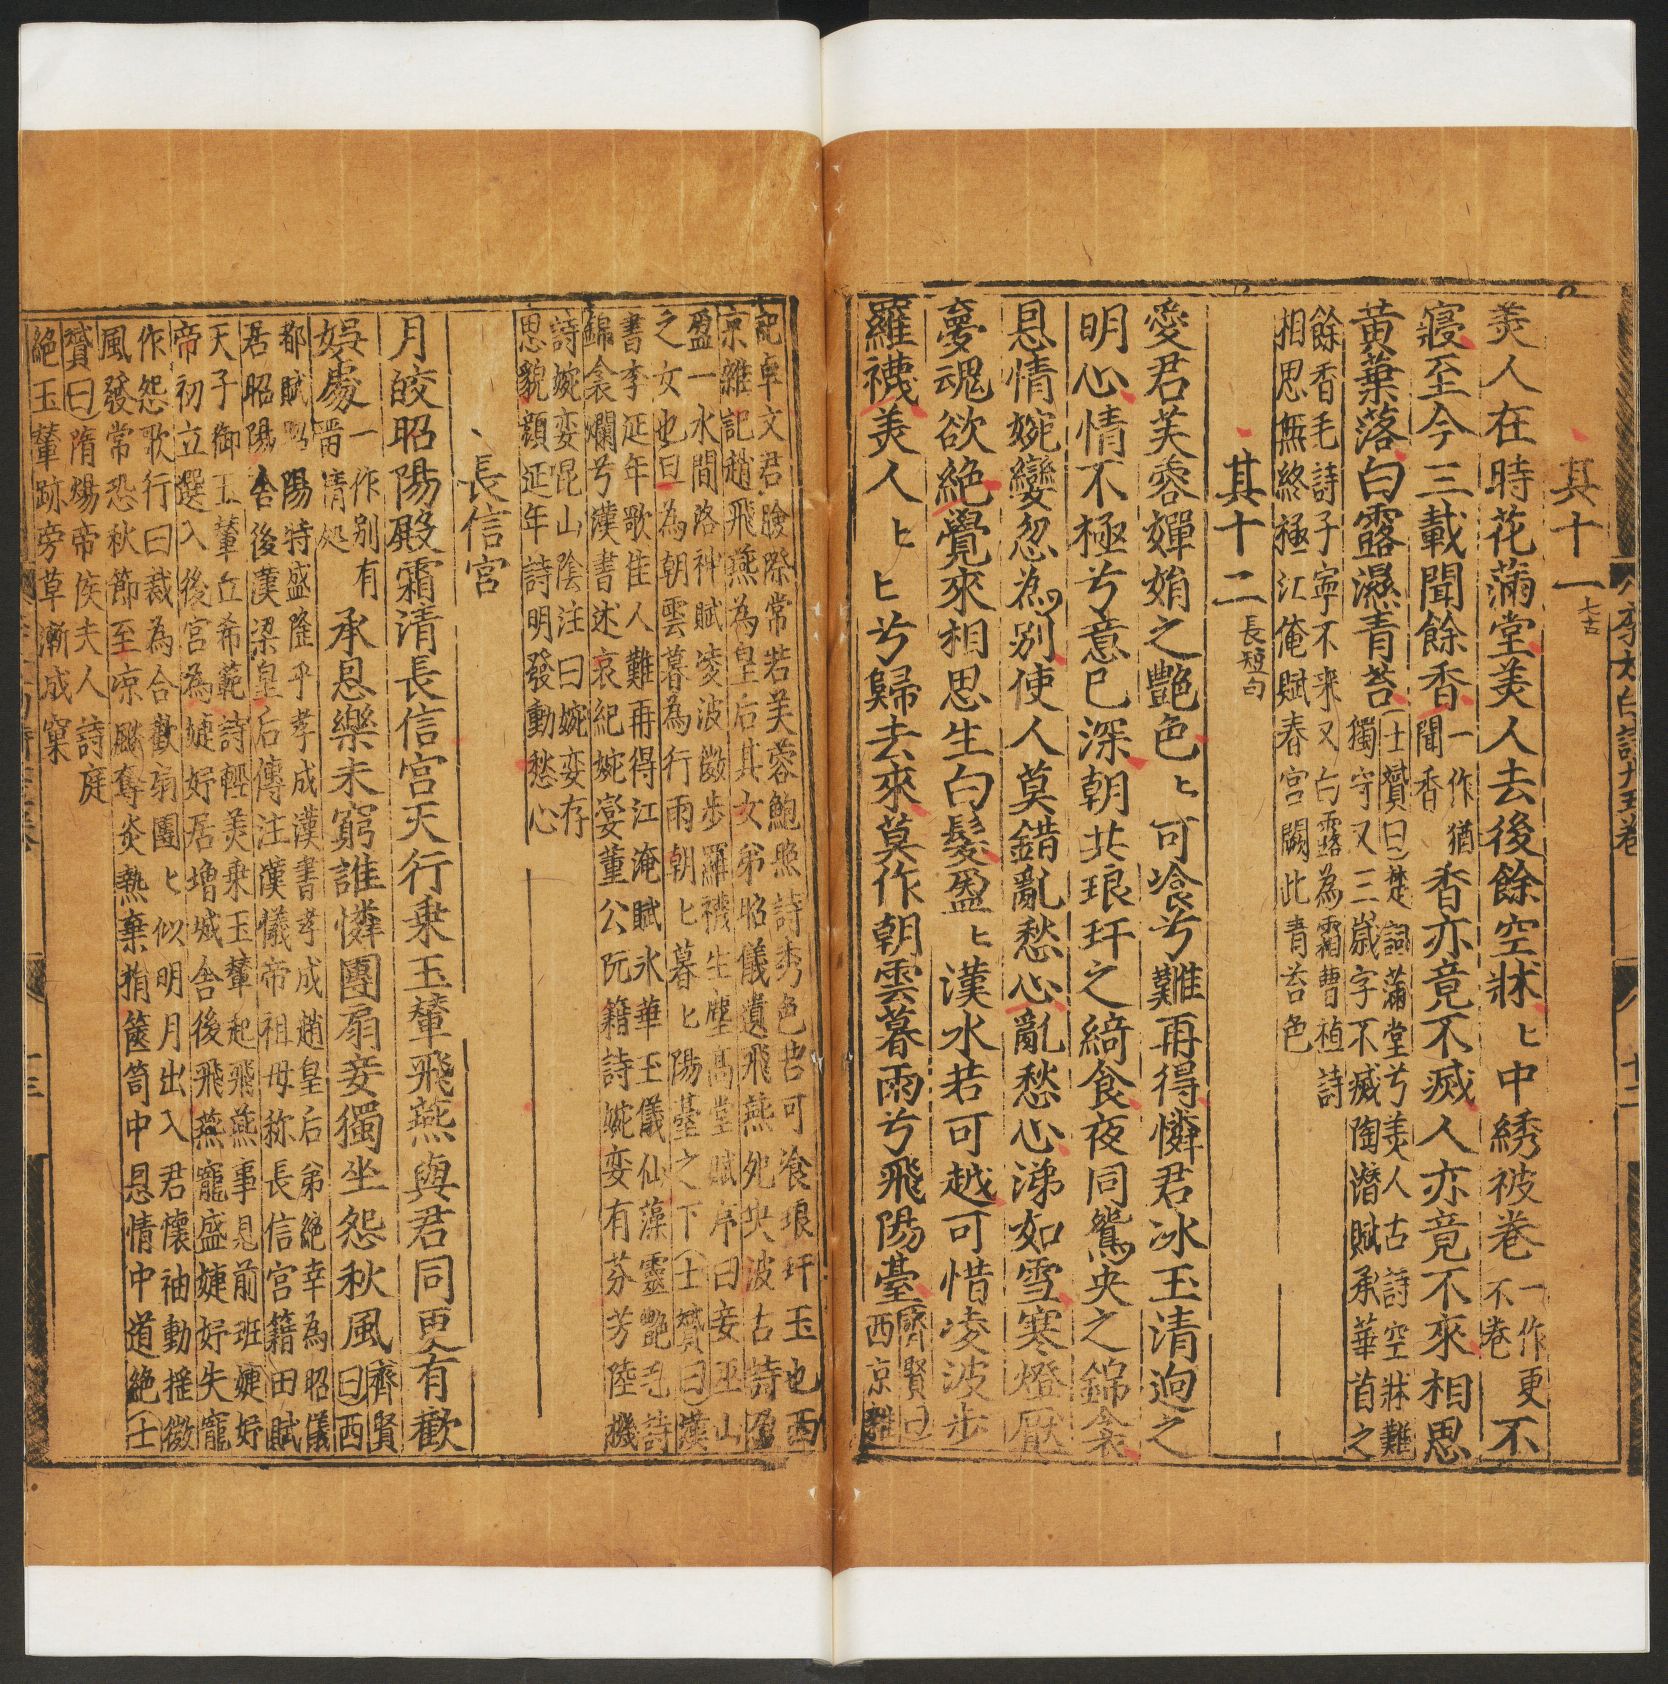 其十一 七古
美人在時花滿堂美人去後餘空牀ヒ中綉被卷 一作更不卷 不
寢至今三載聞餘香 一作猶聞香 香亦竟不滅人亦竟不來相思
黃葉落白露濕青苔 士贇曰楚詞滿堂兮美人古詩空牀難獨守又三歲字不滅陶潛賦承華首之
餘香毛詩子寧不来又白露為霜曹植詩
相思無終極江俺賦春宮閟此青苔色
其十二 長短句
愛君芙蓉嬋娟之艷色ヒ可飡兮難再得憐君冰玉清迥之
明心情不極兮意已深朝共琅玕之綺食夜同鴛央之錦衾
恩情婉孌忽為別使人莫錯亂愁心亂愁心涕如雪寒燈厭
夢魂欲絕覺來相思生白髮盈ヒ漢水若可越可惜凌波步
羅襪美人ヒヒ兮歸去來莫作朝雲暮雨兮飛陽臺 齊賢曰西京雜
記卓文君臉際常若芙蓉鮑照詩秀色若可飡琅玕玉也西
京雜記趙飛燕為皇后其女弟昭儀遺飛燕死央波古詩盈
盈一水間洛神賦凌波微步羅襪生塵高堂賦序曰妾巫山
之女也旦為朝雲暮為行雨朝ヒ暮ヒ陽臺之下士贇曰漢
書李延年歌佳人難再得江淹賦氷華玉儀仙藻靈艷毛詩
錦衾爛兮漢書述哀紀婉孌董公阮籍詩婉孌有芬芳陸機
詩婉孌昆山陰注曰婉孌存
思貌顏延年詩明發動愁心
長信宮
月皎昭陽殿霜清長信宮天行乗玉輦飛燕與君同更有歡
娛處 一作別有歡情処 承恩樂未窮誰憐團扇妾獨坐怨秋風 齊賢曰西
都賦昭陽特盛隆乎孝成漢書孝成趙皇后弟絕幸為昭儀
居昭陽舎後漢梁皇后傳注漢儀帝祖母称長信宮籍田賦
天子御玉輦丘希範詩輕荑乗玉輦起飛燕事見前班婕妤
帝初立選入後宮為婕妤居增城舎後飛燕寵盛婕妤失寵
作怨歌行曰裁為合歡扇團ヒ似明月出入君懷袖動搖微
風發常恐秋節至凉飈奪炎熱棄捐篋笥中恩情中道絕士
贇曰隋煬帝侯夫人詩庭
絕玉輦跡旁草漸成窠